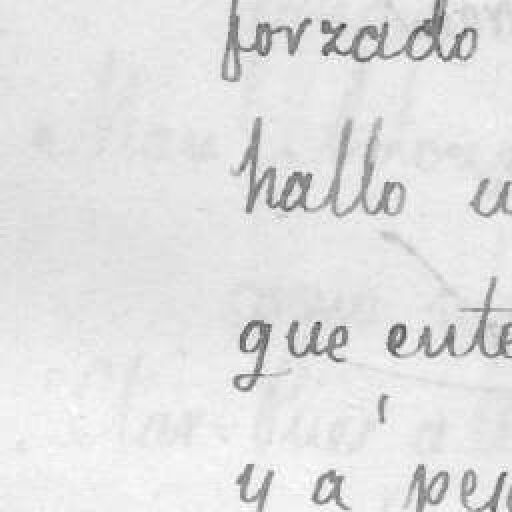 forzado
hallo u
que ente
y a pe